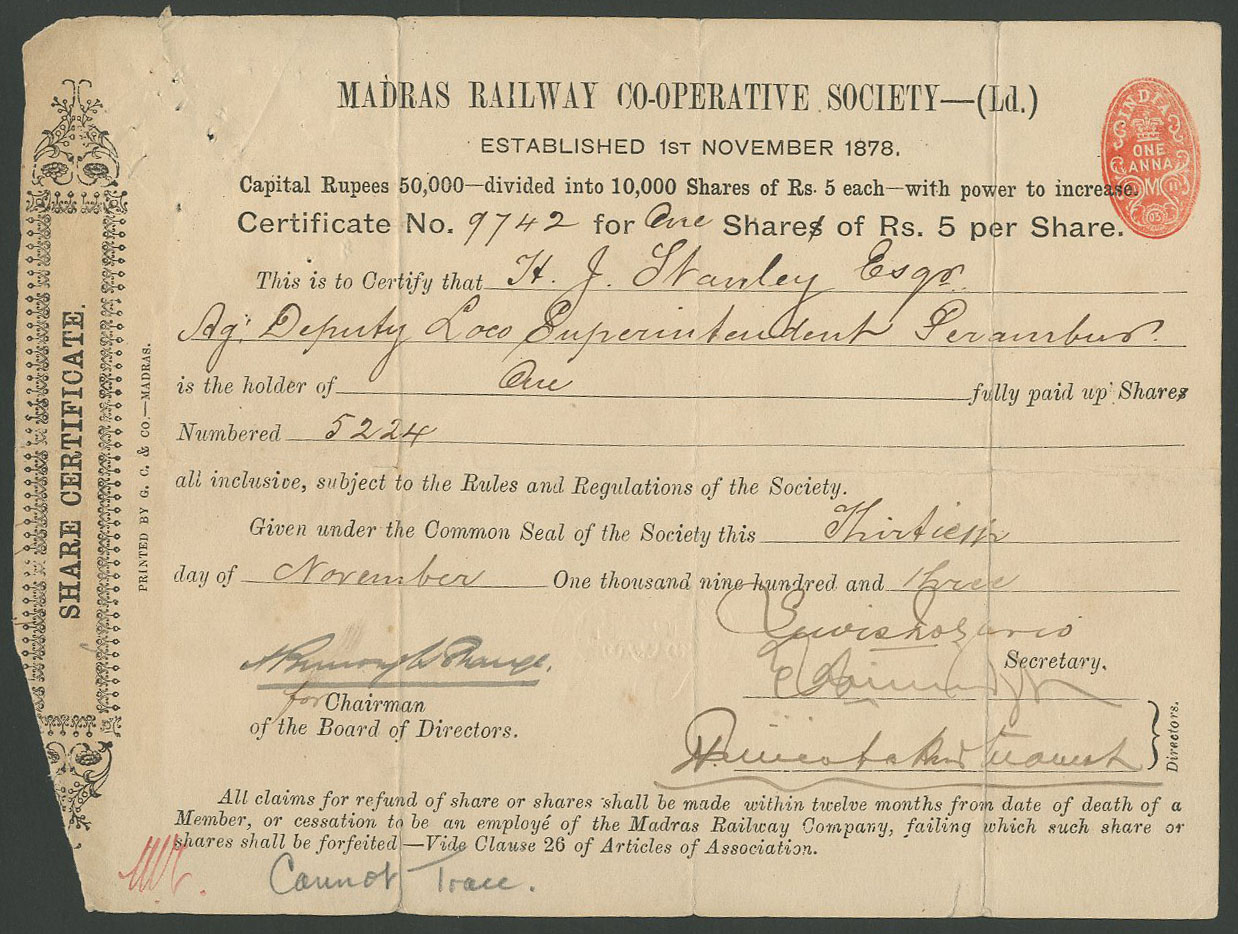 MADRAS RAILWAY CO-OPERATIVE SOCIETY—(Ld.)
ESTABLISHED 1ST NOVEMBER 1878.
Capital Rupees 50,000—divided into 10,000 Shares of Rs. 5 each—with power to increase.
Certificate No. 9742 for One Shares of Rs. 5 per Share.
This is to Certify that H. J. Stanley Esqr.
Ag. Deputy Loco Superintendent Perambur.
is the holder of One fully paid up Shares
Numbered 5224
all inclusive, subject to the Rules and Regulations of the Society.
Given under the Common Seal of the Society this Thirtieth
day of November One thousand nine hundred and three
Secretary.
for Chairman
of the Board of Directors.
Directors.
All claims for refund of share or shares shall be made within twelve months from date of death of a
Member, or cessation to be an employé of the Madras Railway Company, failing which such share or
shares shall be forfeited—Vide Clause 26 of Articles of Association.
Cannot Trace.
SHARE CERTIFICATE.
PRINTED BY G. C. & CO.—MADRAS.
INDIA
ONE
ANNA
M 11
03